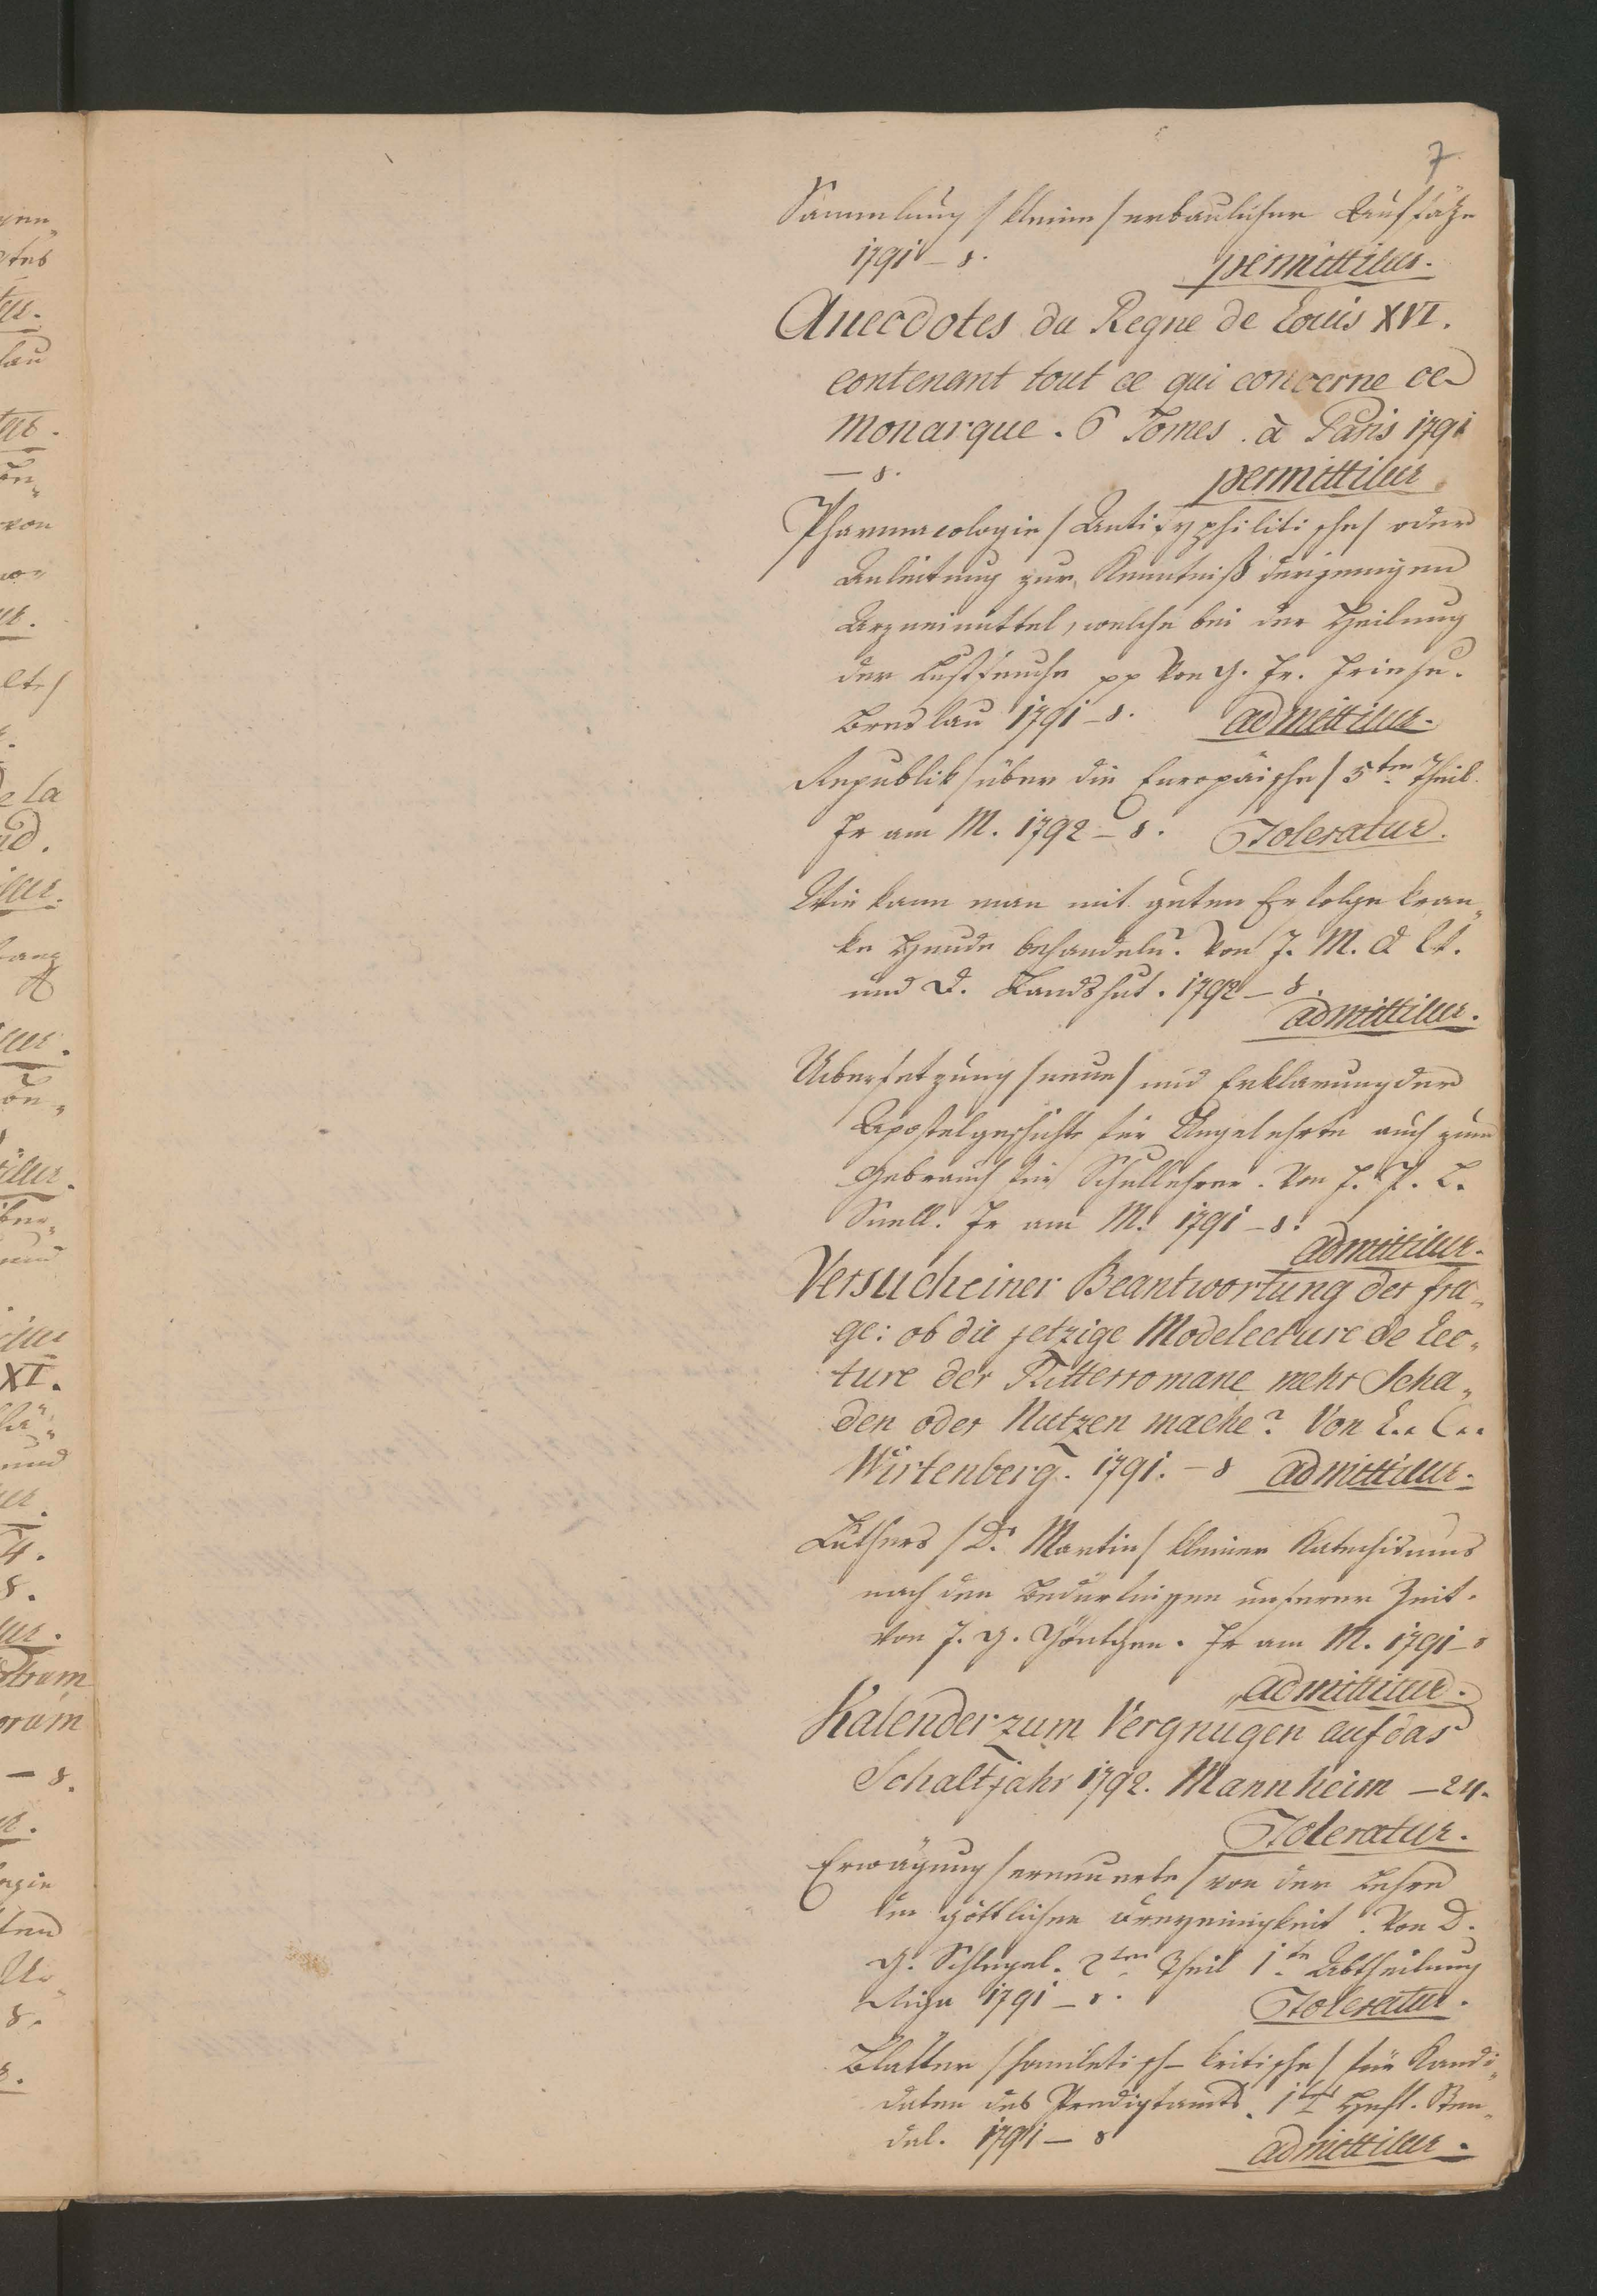 7
Sammlung /kleine/ erbaulicher Aufsätze
1791 – 8.
permittitur.
Anecdotes du Regne de Louis XVI.
contenant tout ce qui concerne ce
Monarque. 6 Tomes. à Paris 1791
– 8.
permittitur
Pharmacologie /Antisyphilitische/ oder
Anleitung zur Kenntniß derjenigen
Arzneimittel, welche bei der Heilung
der Lustseuche pp Von G. Fr.
Breslau 1791 – 8. admittitur.
Republik /über die Europäische/ 5ten Theil.
Fr am M. 1792 – 8. Toleratur.
Wie kann man mit guten Erfolge kran„
ke Hunde behandeln? Von J. M.
und D. Landshut. 1792 – 8.
admittitur.
Uebersetzung /neue/ und Erklarung der
Apostelgeschichte für Ungelehrte auch zum
Gebrauch für Schullehrer. Von J. P. L.
Snell. Fr am M. 1791 – 8.
admittitur.
Versuch einer Beantwortung der fra„
ge: ob die jetzige Modelecture de Lec„
ture der Ritterromane mehr Scha„
den oder Nutzen mache? Von L.. C..
Wirtenberg. 1791. – 8 admittitur.
Luthers /Dr Martin/ kleiner Katechismus
nach den Bedürfnissen unserer Zeit.
Von J. G. Fr am M. 1791 – 8
admittitur.
Kalender zum Vergnugen auf das
Schaltjahr 1792. Mannheim – 24.
Toleratur.
Erwägung /erneuerte/ von der Lehre
der göttlichen Dreyeinigkeit. Von D.
G. Schlegel. 2ten Theil 1te Abtheilung
Riga 1791 – 8.
Toleratur.
Blatter /homiletisch – kritische/ für Kandi„
daten des Predigtamts. 1tes Heft. Sten„
dal. 1791 – 8
admittitur.